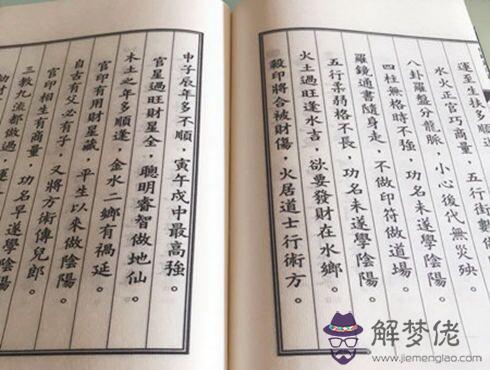 運至生扶多順
水火正官巧商量，功名未遂學陰陽。
八卦羅盤分龍脈，小心後代無災殃。
四柱無格時不強，功名未遂學陰陽。
羅鏡通書隨身走，不做印符做道場。
五行柔弱格不長，功名未遂學陰陽。
火土過旺逢水吉，欲要發財在水鄉。
殺印將合被財傷，火居道士行術方。
申子辰年多不順，寅午戌中最高強。
官星過旺財星全，聰明睿智做地仙。
木土之年多順逢，金水二鄉有禍延。
官印有用財星藏，平生以來做陰陽。
自古有父必有子，又將方術傳兒郎。
官印相生有商量，功名早遂學陰陽。
三教九流都做過，運
解梦佬
www.jiemenglao.com